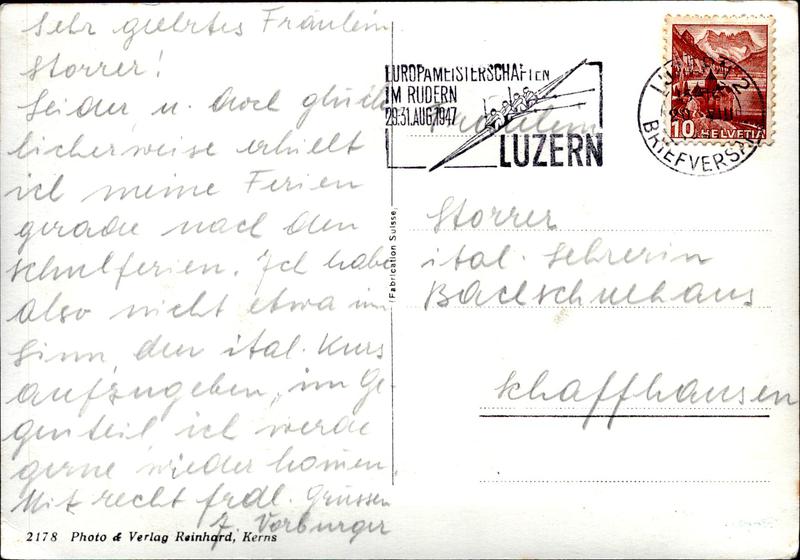 Sehr geehrtes Fräulein
Storrer!
Leider u. doch glück
licherweise erhielt
ich meine Ferien
gerade nach den
Schulferien. Ich habe
also nicht etwa im
Sinn, den ital. Kurs
aufzugeben, im Ge-
genteil, ich werde
gerne wieder kommen.
Mit recht frdl. Grüssen
J. Vorburger
2178 Photo & Verlag Reinhard, Kerns
(Fabrication Suisse)
EUROPAMEISTERSCHAFTEN
IM RUDERN
29.31.AUG.1947
LUZERN
LUZERN 2
BRIEFVERSAND
10 HELVETIA
Fräulein
Storrer
ital. Lehrerin
Bachschulhaus
Schaffhausen